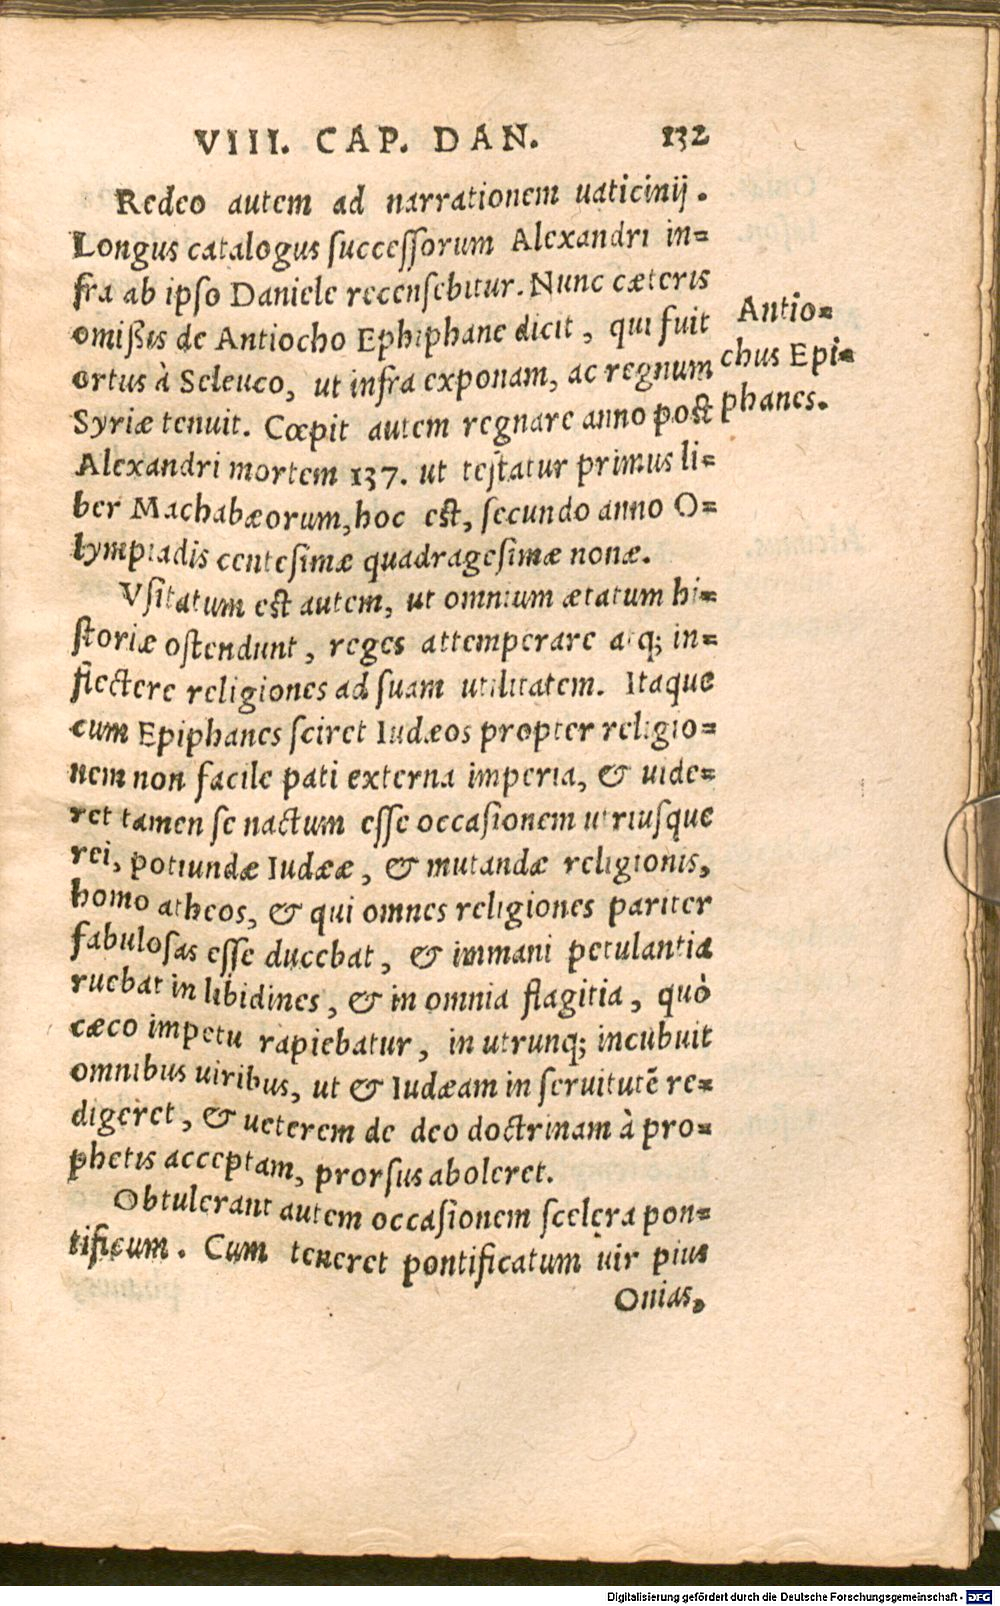 VIII. CAP. DAN. 132
Redeo autem ad narrationem uaticinij.
Longus catalogus successorum Alexandri in=
fra ab ipso Daniele recensebitur. Nunc cæteris
omißis de Antiocho Ephiphane dicit, qui fuit
ortus à Seleuco, ut infra exponam, ac regnum
Syriæ tenuit. Cœpit autem regnare anno post
Alexandri mortem 137. ut testatur primus li=
ber Machabæorum, hoc est, secundo anno O=
lympiadis centesimæ quadragesimæ nonæ.
Antio=
chus Epi=
phanes.
Vsitatum est autem, ut omnium ætatum hi=
storiæ ostendunt, reges attemperare atq; in=
flectere religiones ad suam utilitatem. Itaque
cum Epiphanes sciret Iudæos propter religio=
nem non facile pati externa imperia, & uide=
ret tamen se nactum esse occasionem utriusque
rei, potiundæ Iudææ, & mutandæ religionis,
homo atheos, & qui omnes religiones pariter
fabulosas esse ducebat, & immani petulantia
ruebat in libidines, & in omnia flagitia, quò
cæco impetu rapiebatur, in utrunq; incubuit
omnibus uiribus, ut & Iudæam in seruitutē re=
digeret, & ueterem de deo doctrinam à pro=
phetis acceptam, prorsus aboleret.
Obtulerant autem occasionem scelera pon=
tificum. Cum teneret pontificatum uir pius
Onias,
Digitalisierung gefördert durch die Deutsche Forschungsgemeinschaft - DFG